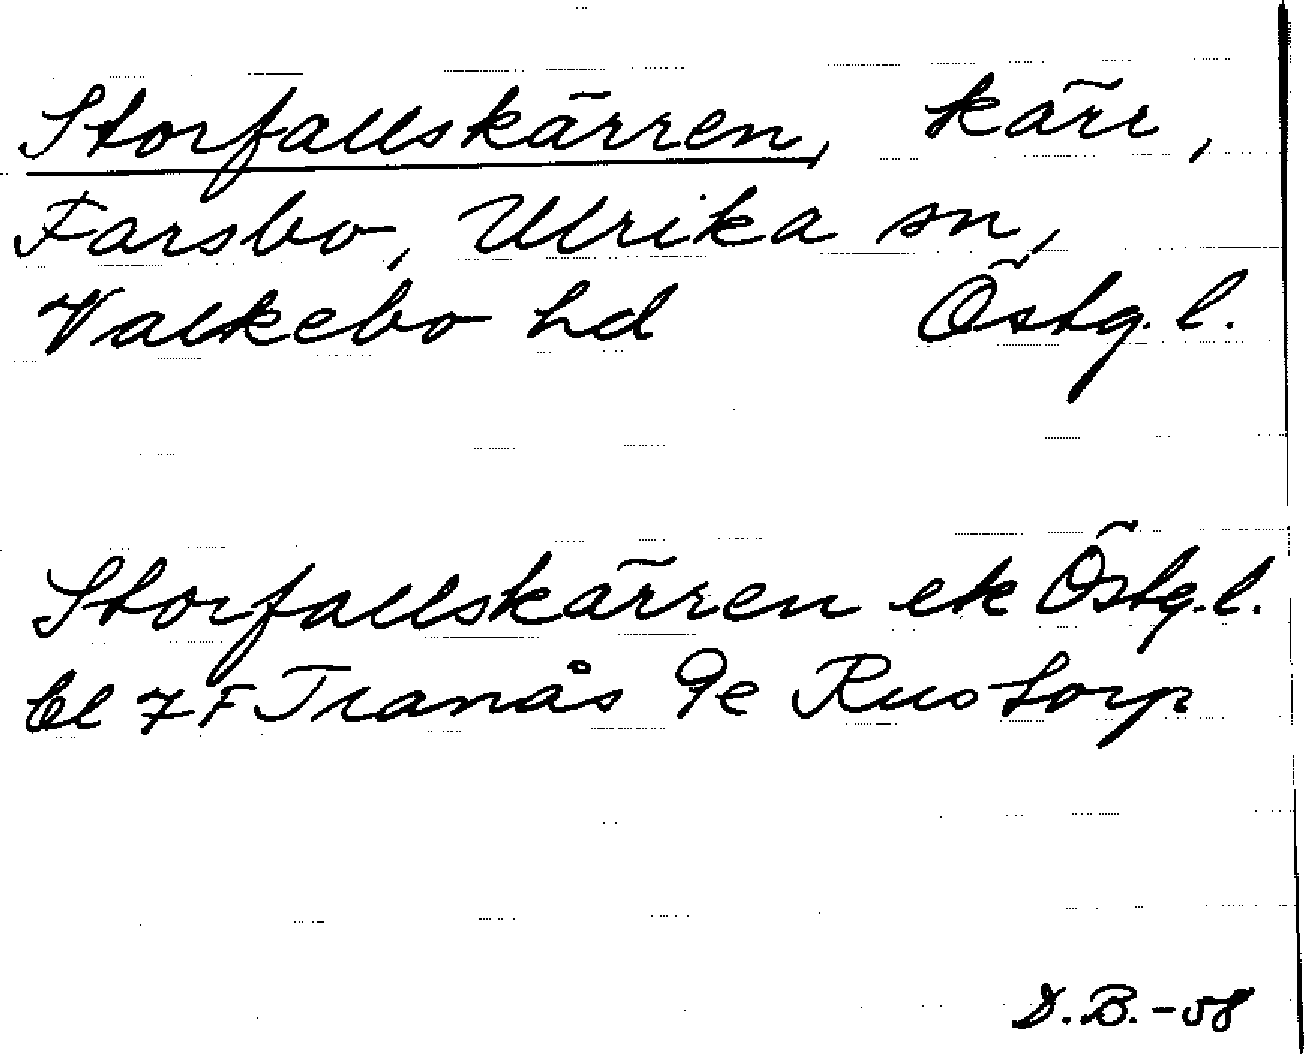 Storfallskärren, kärr,
Farsbo, Ulrika sn,
Valkebo hd Östg. l.
Storfallskärren ek Östg. l.
bl 7F Tranås 9e Rustorp
D.B. -58